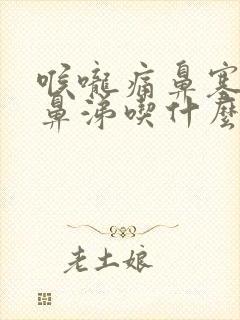 喉嚨痛鼻塞
鼻涕喫什麼
老土娘